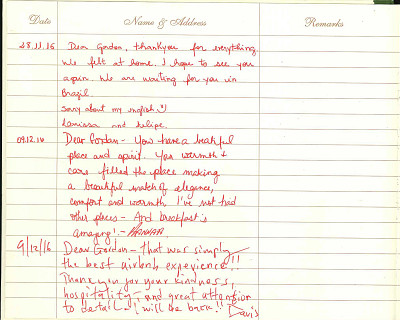 Date Name & Address Remarks
28.11.16 Dear Gordon, thankyou for everything
We felt at home. I hope to see you
again. We are waiting for you in
Brazil
Sorry about my english :)
Larissa and Felipe.
09.12.16 Dear Gordon - You have a beautiful
place and spirit. Your warmth +
care filled the place making
a beautiful match of elegance,
comfort and warmth I've not had
other places - And breakfast is
amazing! - HANNAH
9/12/16 Dear Gordon - that was simply
the best airbnb experience!!
Thank you for your kindness,
hospitality, and great attention
to detail. I will be back!! Davis